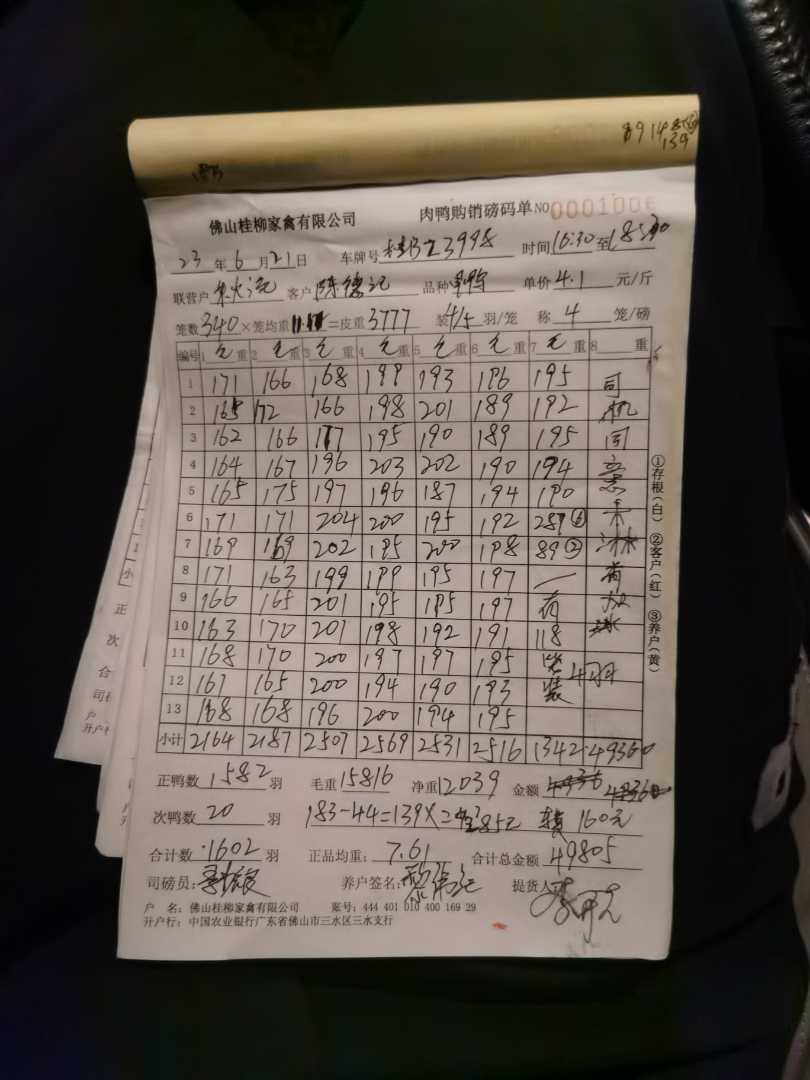 佛山桂柳家禽有限公司 肉鸭购销磅码单 NO 0001006
23 年 6 月 21 日 车牌号 3998 时间 16:30 至 18
联营户 客户 陈德记 品种 单价 4.1 元/斤
笼数 340 × 笼均重 =皮重 3777 装 4/5 羽/笼 称 4 笼/磅
编号 1 毛 重 2 毛 重 3 毛 重 4 毛 重 5 毛 重 6 毛 重 7 毛 重 8 重
1 171 166 168 199 193 196 195 司
2 165 172 166 198 201 189 192 机
3 162 166 177 195 190 189 195 同
4 164 167 196 203 202 190 194 意
5 165 175 197 196 187 194 190
6 171 171 204 200 195 192 289⑥
7 169 169 202 195 200 198 89② 淋
8 171 163 199 199 195 197 一
9 166 165 201 195 195 197
10 163 170 201 198 192 191 118
11 168 170 200 197 197 195
12 167 165 200 194 190 193 装 4羽
13 168 168 196 200 194 195
小计 2164 2187 2507 2569 2531 2516 1342
正鸭数 1582 羽 毛重 15816 净重 12039 金额
次鸭数 20 羽 183-44=139× 160元
合计数 1602 羽 正品均重: 7.61 合计总金额 49805
司磅员: 养户签名: 提货人
户 名: 佛山桂柳家禽有限公司 账号: 444 401 010 400 169 29
开户行: 中国农业银行广东省佛山市三水区三水支行
①存根(白) ②客户(红) ③养户(黄)